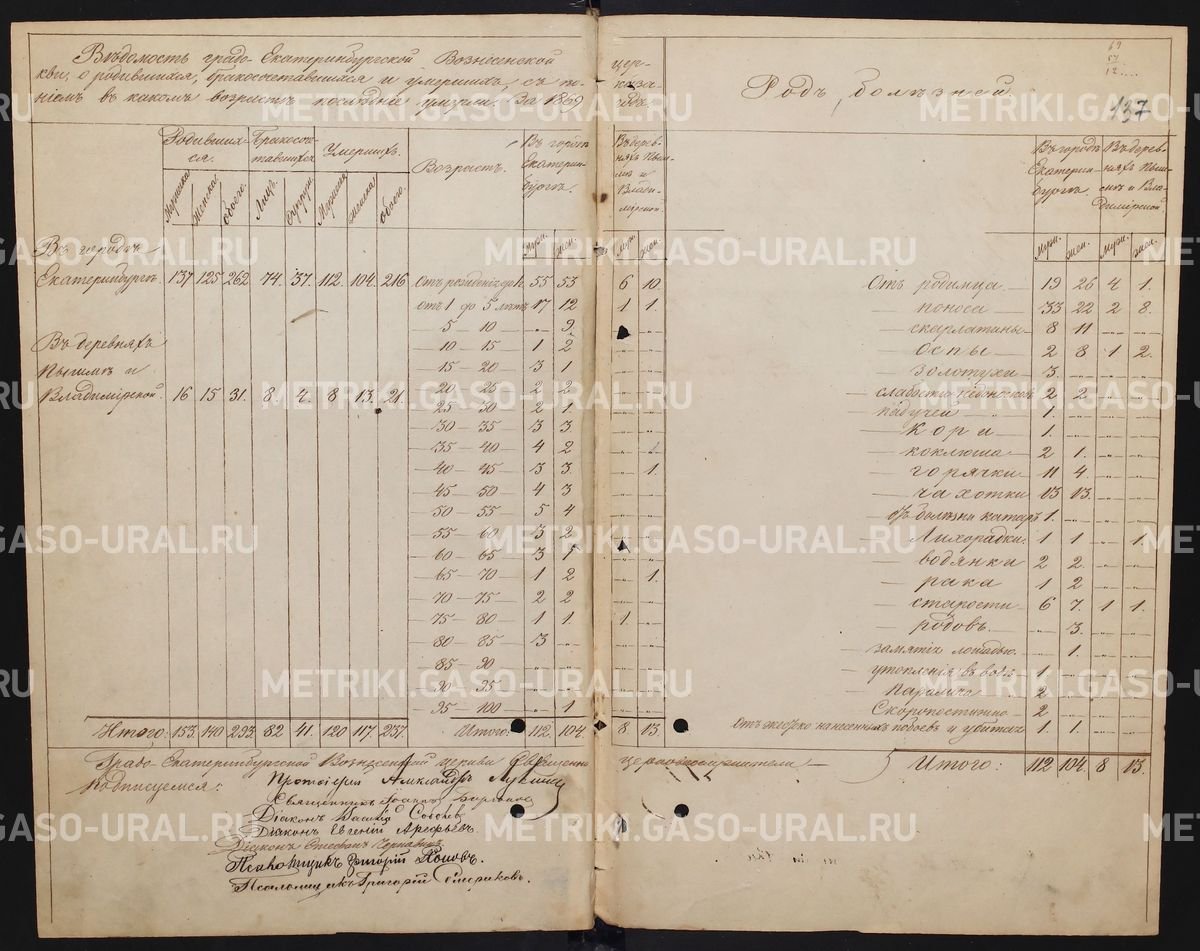 Вѣдомость градо-Екатеринбургской Вознесенской цер-
кви, о родившихся, бракосочетавшихся и умершихъ, съ показа-
ніемъ въ какомъ возрастѣ послѣдніе умерли, за 1869 годъ.
Родивших-
ся.
Бракосоче-
тавшихся
Умершихъ.
Возрастъ.
Въ городѣ
Екатерин-
бургѣ.
Въ дерев-
няхъ Пыш-
мѣ и
Влади-
мірской
Мужеска
Женска
Обоего.
Лицъ.
Супруж.
Мужеска
Женска
Обоего.
муж. жен. муж. жен.
Въ городѣ
Екатеринбургѣ 137 125 262 74. 37. 112. 104. 216
Въ деревняхъ
Пышмѣ и
Владимірской 16 15 31. 8. 4. 8 13. 21.
Отъ рожденія до 1. 55 53 6 10
отъ 1 до 5 лѣтъ 17 12 1 1
5 — 10 — „ 9
10 — 15 — 1 2
15 — 20 — 3 1
20 — 25 — 2 2
25 — 30 — 2 1
30 — 35 — 3 3
35 — 40 — 4 2
40 — 45 — 3 3 „ 1
45 — 50 — 4 3
50 — 55 — 5 4
55 — 60 — 3 2
60 — 65 — 3 1
65 — 70 — 1 2 „ 1.
70 — 75 — 2 2
75 — 80 — 1 1 1. „
80 — 85 — 3 „
85 — 90 — „ „
90 — 95 — „ „
95 — 100 — „ 1
Итого: 153. 140 293. 82 41. 120 117. 237.
Итого: 112. 104 8 13.
Градо-Екатеринбургской Вознесенской церкви Священно церковнослужители
Подписуемся:
Протоіерей Александръ
Священникъ Іоаннъ
Діаконъ Василій
Діаконъ Евгеній Арефьевъ.
Діаконъ Стефанъ
Псаломщикъ Григорій Поповъ.
Псаломщикъ Григорій
69
12
137
Родъ болѣзней
Въ городѣ
Екатерин-
бургѣ
Въ дерев-
няхъ Пыш-
мѣ и Вла-
димірской
муж. жен. муж. жен.
Отъ родимца 19 26 4 1.
— поноса 33 22 2 8.
— скарлатины 8 11
— оспы 2 8 1 2.
— золотухи 3.
— слабости 2 2
падучей 1.
— кори 1.
— коклюша 2 1.
— горячки 11 4.
— чахотки 13 13.
болѣзни катаръ 1.
— лихорадки 1 1 „ 1.
— водянки 2 2.
— рака 1 2
— старости 6 7. 1 1.
— родовъ. „ 3.
— замятія лошадью. „ 1.
утопленія въ водѣ 1
— Паралича 2
Скоропостижно 2
Отъ жестоко нанесенныхъ побоевъ и убитыхъ 1 1.
Итого: 112 104. 8 13.
METRIKI.GASO-URAL.RU